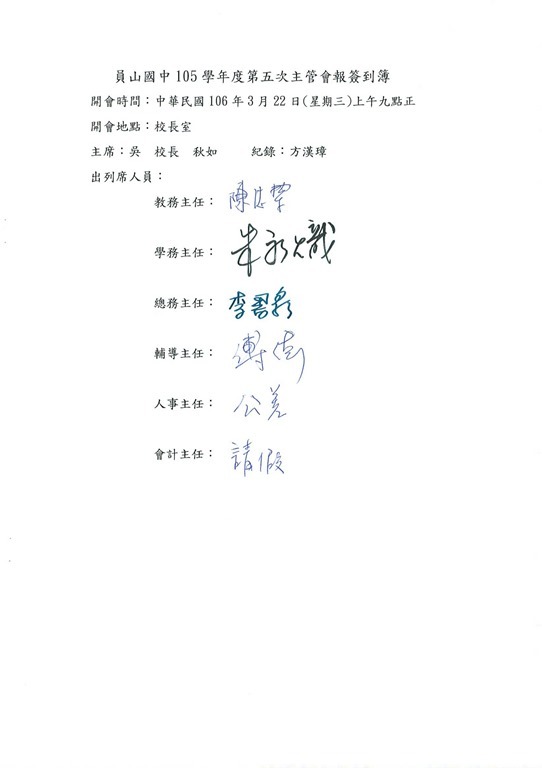 員山國中 105 學年度第五次主管會報簽到簿
開會時間：中華民國 106 年 3 月 22 日(星期三)上午九點正
開會地點：校長室
主席：吳 校長 秋如 紀錄：方漢璋
出列席人員：
教務主任：陳
學務主任：朱永熾
總務主任：李
輔導主任：傅
人事主任：公差
會計主任：請假